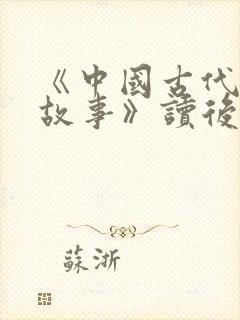 《中國古代
故事》讀後
蘇浙